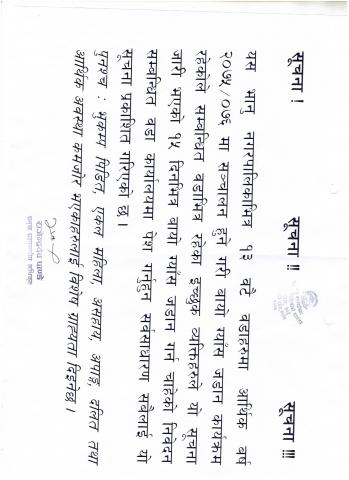 सूचना ! सूचना !! सूचना !!!
यस भानु नगरपालिकाभित्र १३ वटै वडाहरुमा आर्थिक वर्ष
२०७५/०७६ मा सञ्चालन हुने गरी बायो ग्यांस जडान कार्यक्रम
रहेकोले सम्वन्धित वडाभित्र रहेका इच्छुक व्यक्तिहरुले यो सूचना
जारी भएको १५ दिनभित्र बायो ग्यांस जडान गर्न चाहेको निवेदन
सम्वन्धित वडा कार्यालयमा पेश गर्नुहुन सर्वसाधारण सवैलाई यो
सूचना प्रकाशित गरिएको छ ।
पुनश्च : भुकम्प पिडित, एकल महिला, असहाय, अपाङ्ग, दलित तथा
आर्थिक अवस्था कमजोर भएकाहरुलाई विशेष साहयता दिइनेछ ।